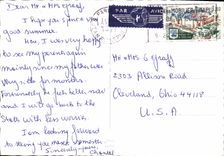 Dear Mr & Mrs Graff,
I hope you spend a very
good summer.
Here, I was very happy
to see my parents again
mainly since my father was
very sick for months.
Fortunately he feels better now
and I will go back to the
States with less worries.
I am looking forward
to seeing you next semester
Sincerely yours
Chantal
PAR AVION
Mr & Mrs G Graff
2303 Allison Road
Cleveland, Ohio 44118
U.S.A.